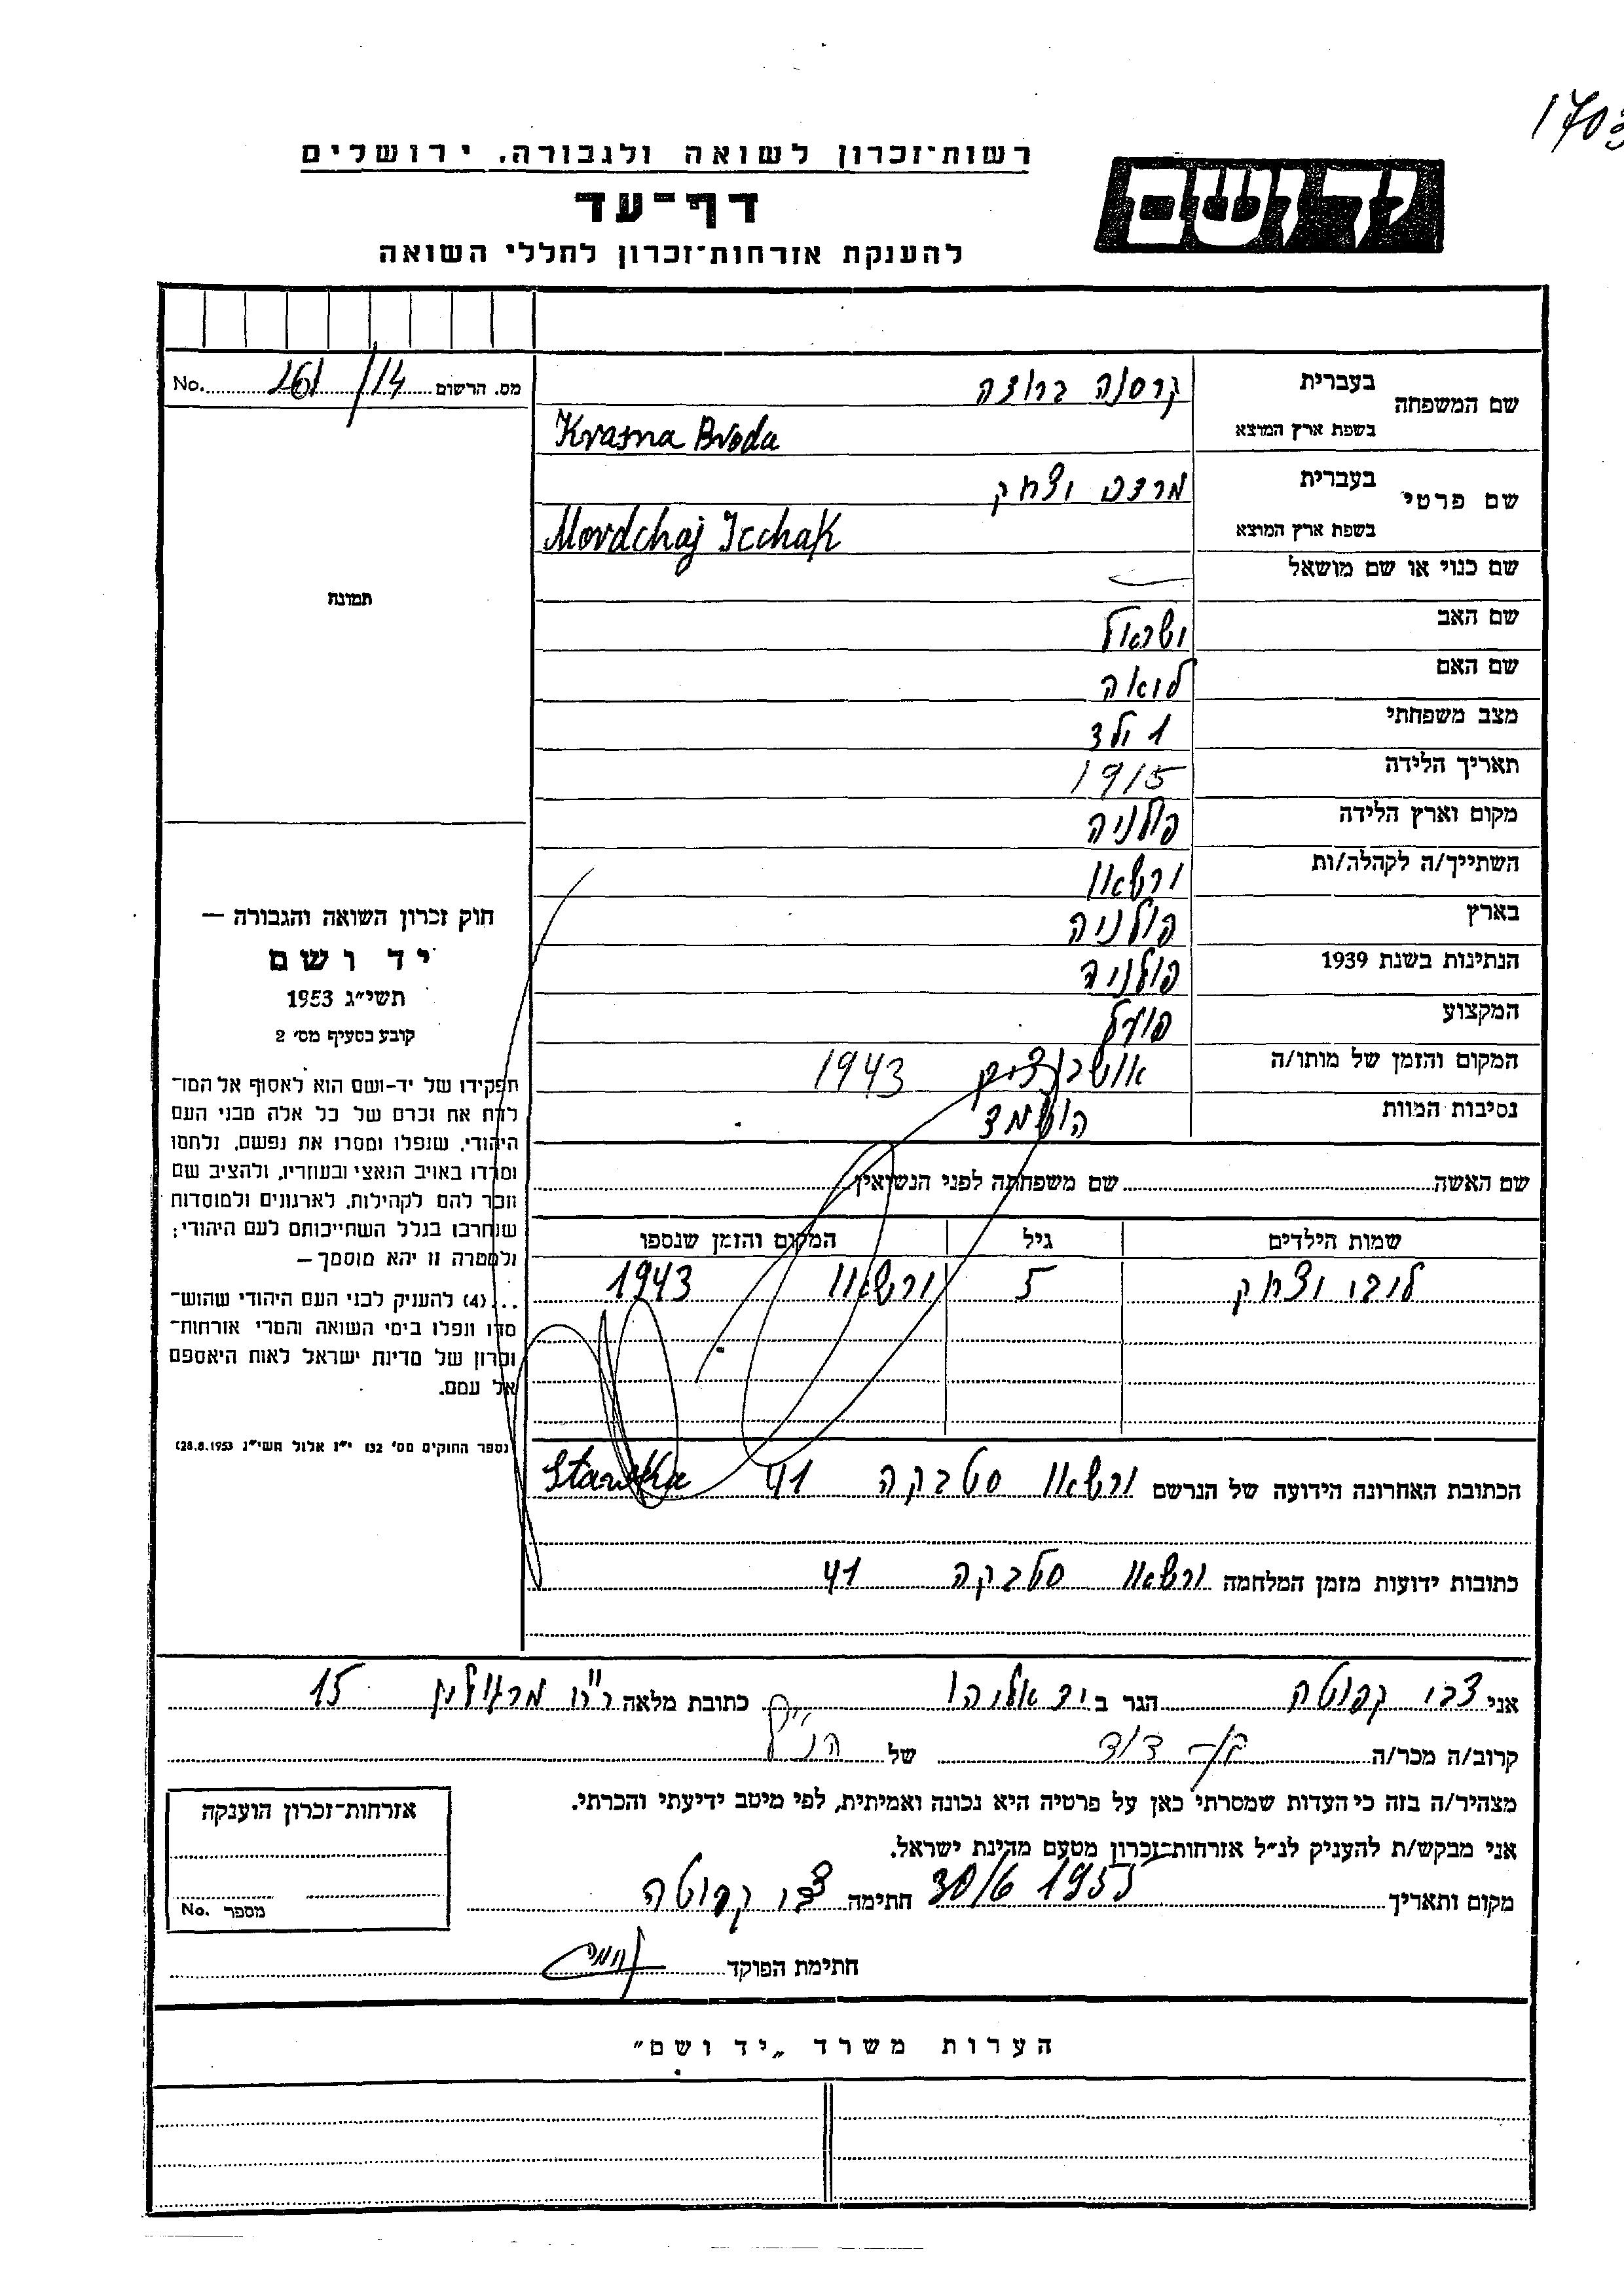 1703
רשות־זכרון לשואה ולגבורה, ירושלים
יד ושם
דף־עד
להענקת אזרחות־זכרון לחללי השואה
מס. הרשום 161/14 No.
שם המשפחה בעברית קרסנה ברודה
בשפת ארץ המוצא Krasna Broda
שם פרטי בעברית מרדכי יצחק
בשפת ארץ המוצא Mordchaj Icchak
שם כנוי או שם מושאל —
שם האב ישראל
שם האם לואה
מצב משפחתי 1 ילד
תאריך הלידה 1915
מקום וארץ הלידה פולניה
השתייך/ה לקהלה/ות ורשאו
בארץ פולניה
הנתינות בשנת 1939 פולניה
המקצוע פועל
המקום והזמן של מותו/ה 1943
נסיבות המוות הושמד
שם האשה שם משפחתה לפני הנשואין
שמות הילדים גיל המקום והזמן שנספו
יצחק 5 ורשאו 1943
הכתובת האחרונה הידועה של הנרשם ורשאו סטבקה 41 Stawka
כתובות ידועות מזמן המלחמה ורשאו סטבקה 41
תמונה
חוק זכרון השואה והגבורה —
יד ושם
תשי״ג 1953
קובע בסעיף מס׳ 2
תפקידו של יד-ושם הוא לאסוף אל המו־
לדת את זכרם של כל אלה מבני העם
היהודי, שנפלו ומסרו את נפשם, נלחמו
ומרדו באויב הנאצי ובעוזריו, ולהציב שם
וזכר להם לקהילות, לארגונים ולמוסדות
שנחרבו בגלל השתייכותם לעם היהודי;
ולמטרה זו יהא מוסמך —
...(4) להעניק לבני העם היהודי שהוש־
מדו ונפלו בימי השואה והמרי אזרחות־
זכרון של מדינת ישראל לאות היאספם
אל עמם.
(ספר החוקים מס׳ 132 י״ז אלול תשי״ג 28.8.1953)
אני צבי קפוטה הגר ב יד אליהו כתובת מלאה רח׳ מרגולין 15
קרוב/ה מכר/ה בן- דוד של הנ״ל
מצהיר/ה בזה כי העדות שמסרתי כאן על פרטיה היא נכונה ואמיתית, לפי מיטב ידיעתי והכרתי.
אני מבקש/ת להעניק לנ״ל אזרחות־זכרון מטעם מדינת ישראל.
מקום ותאריך 30/6 1955 חתימה צבי קפוטה
חתימת הפוקד
אזרחות־זכרון הוענקה
מספר No.
הערות משרד „יד ושם״